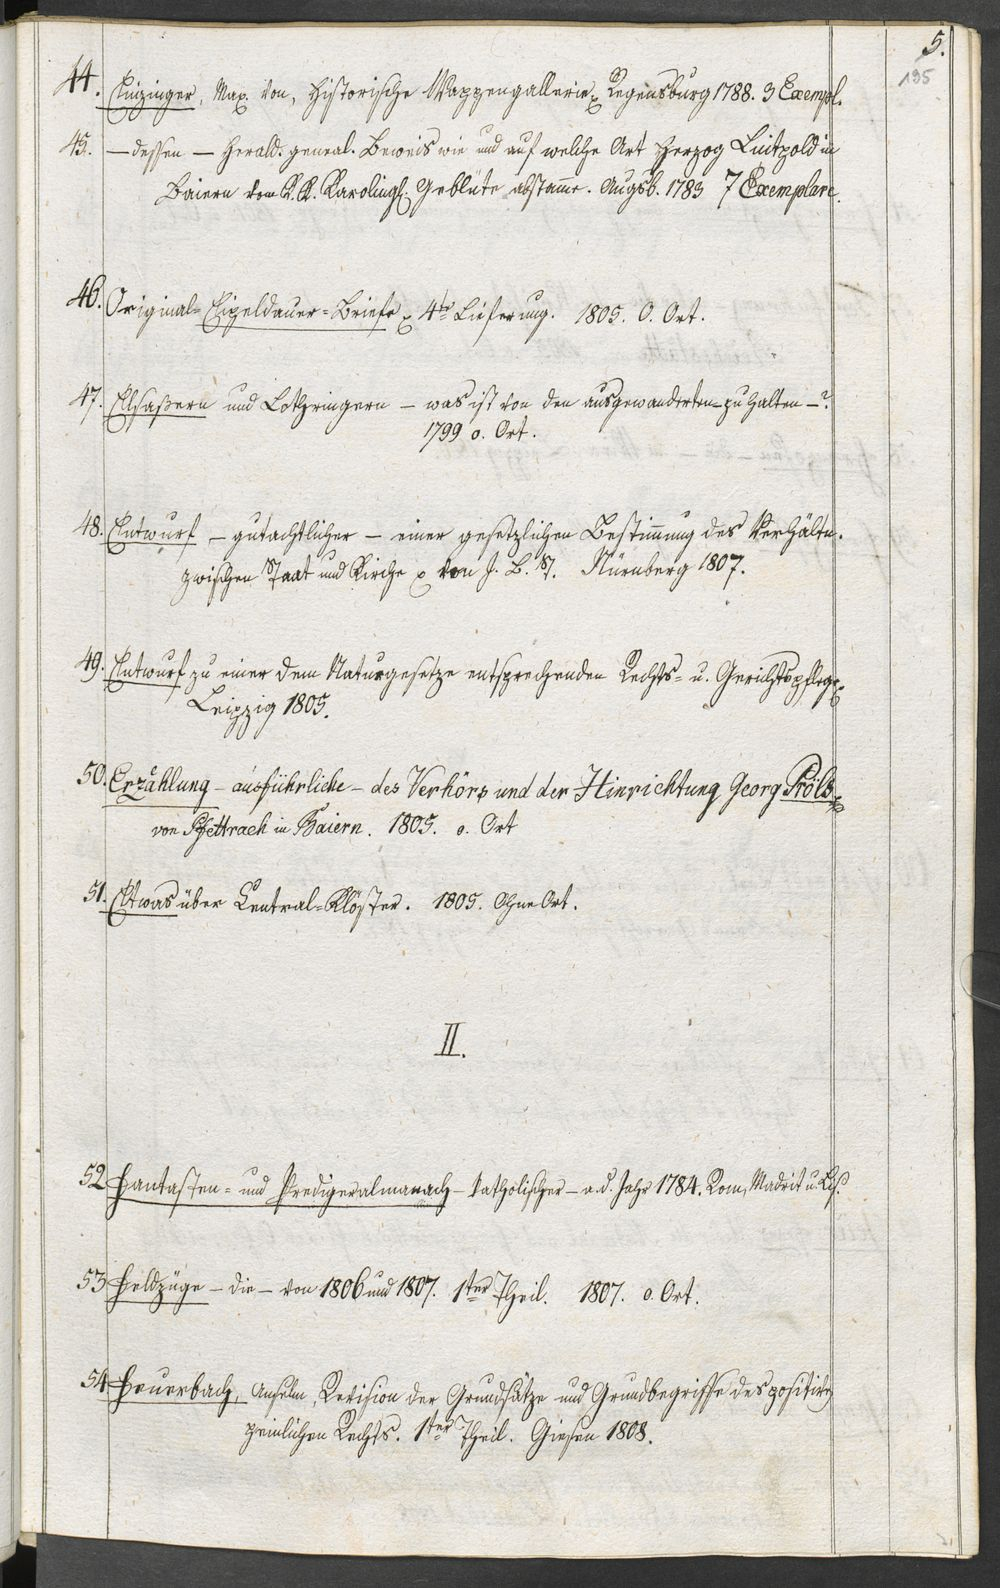 5.
195
44. Einzinger, Max. von, Historische Wappengallerie x Regensburg 1788. 3 Exempl.
45. — dessen — Herald. geneal. Beweis wie und auf welche Art Herzog Luitpold in
Baiern vom K. K. Karolingl. Geblüte abstamme. Augsb. 1783 7 Exemplare.
46. Original-Eipeldauer-Briefe x 4te Lieferung. 1805. O. Ort.
47. Elsaßern und Lothringern — was ist von den ausgewanderten zu halten —?
1799 o. Ort.
48. Entwurf — gutachtlicher — einer gesetzlichen Bestimmung des Verhältn.
zwischen Staat und Kirche x von J. B. St. Nürnberg 1807.
49. Entwurf zu einer dem Naturgesetze entsprechenden Rechts- u. Gerichtspflege x
Leipzig 1805.
50. Erzählung — ausführliche — des Verhörs und der Hinrichtung Georg Pröls x
von Pfettrach in Baiern. 1805. o. Ort
51. Etwas über Central-Klöster. 1805. Ohne Ort.
II.
52 Fantasten- und Predigeralmanach — katholischer — a. d. Jahr 1784. Rom, Madrit u. Liss.
53 Feldzüge — die — von 1806 und 1807. 1ter Theil. 1807. o. Ort.
54 Feuerbach, Anselm, Revision der Grundsätze und Grundbegriffe des positiven
peinlichen Rechts. 1ter Theil. Giesen 1808.